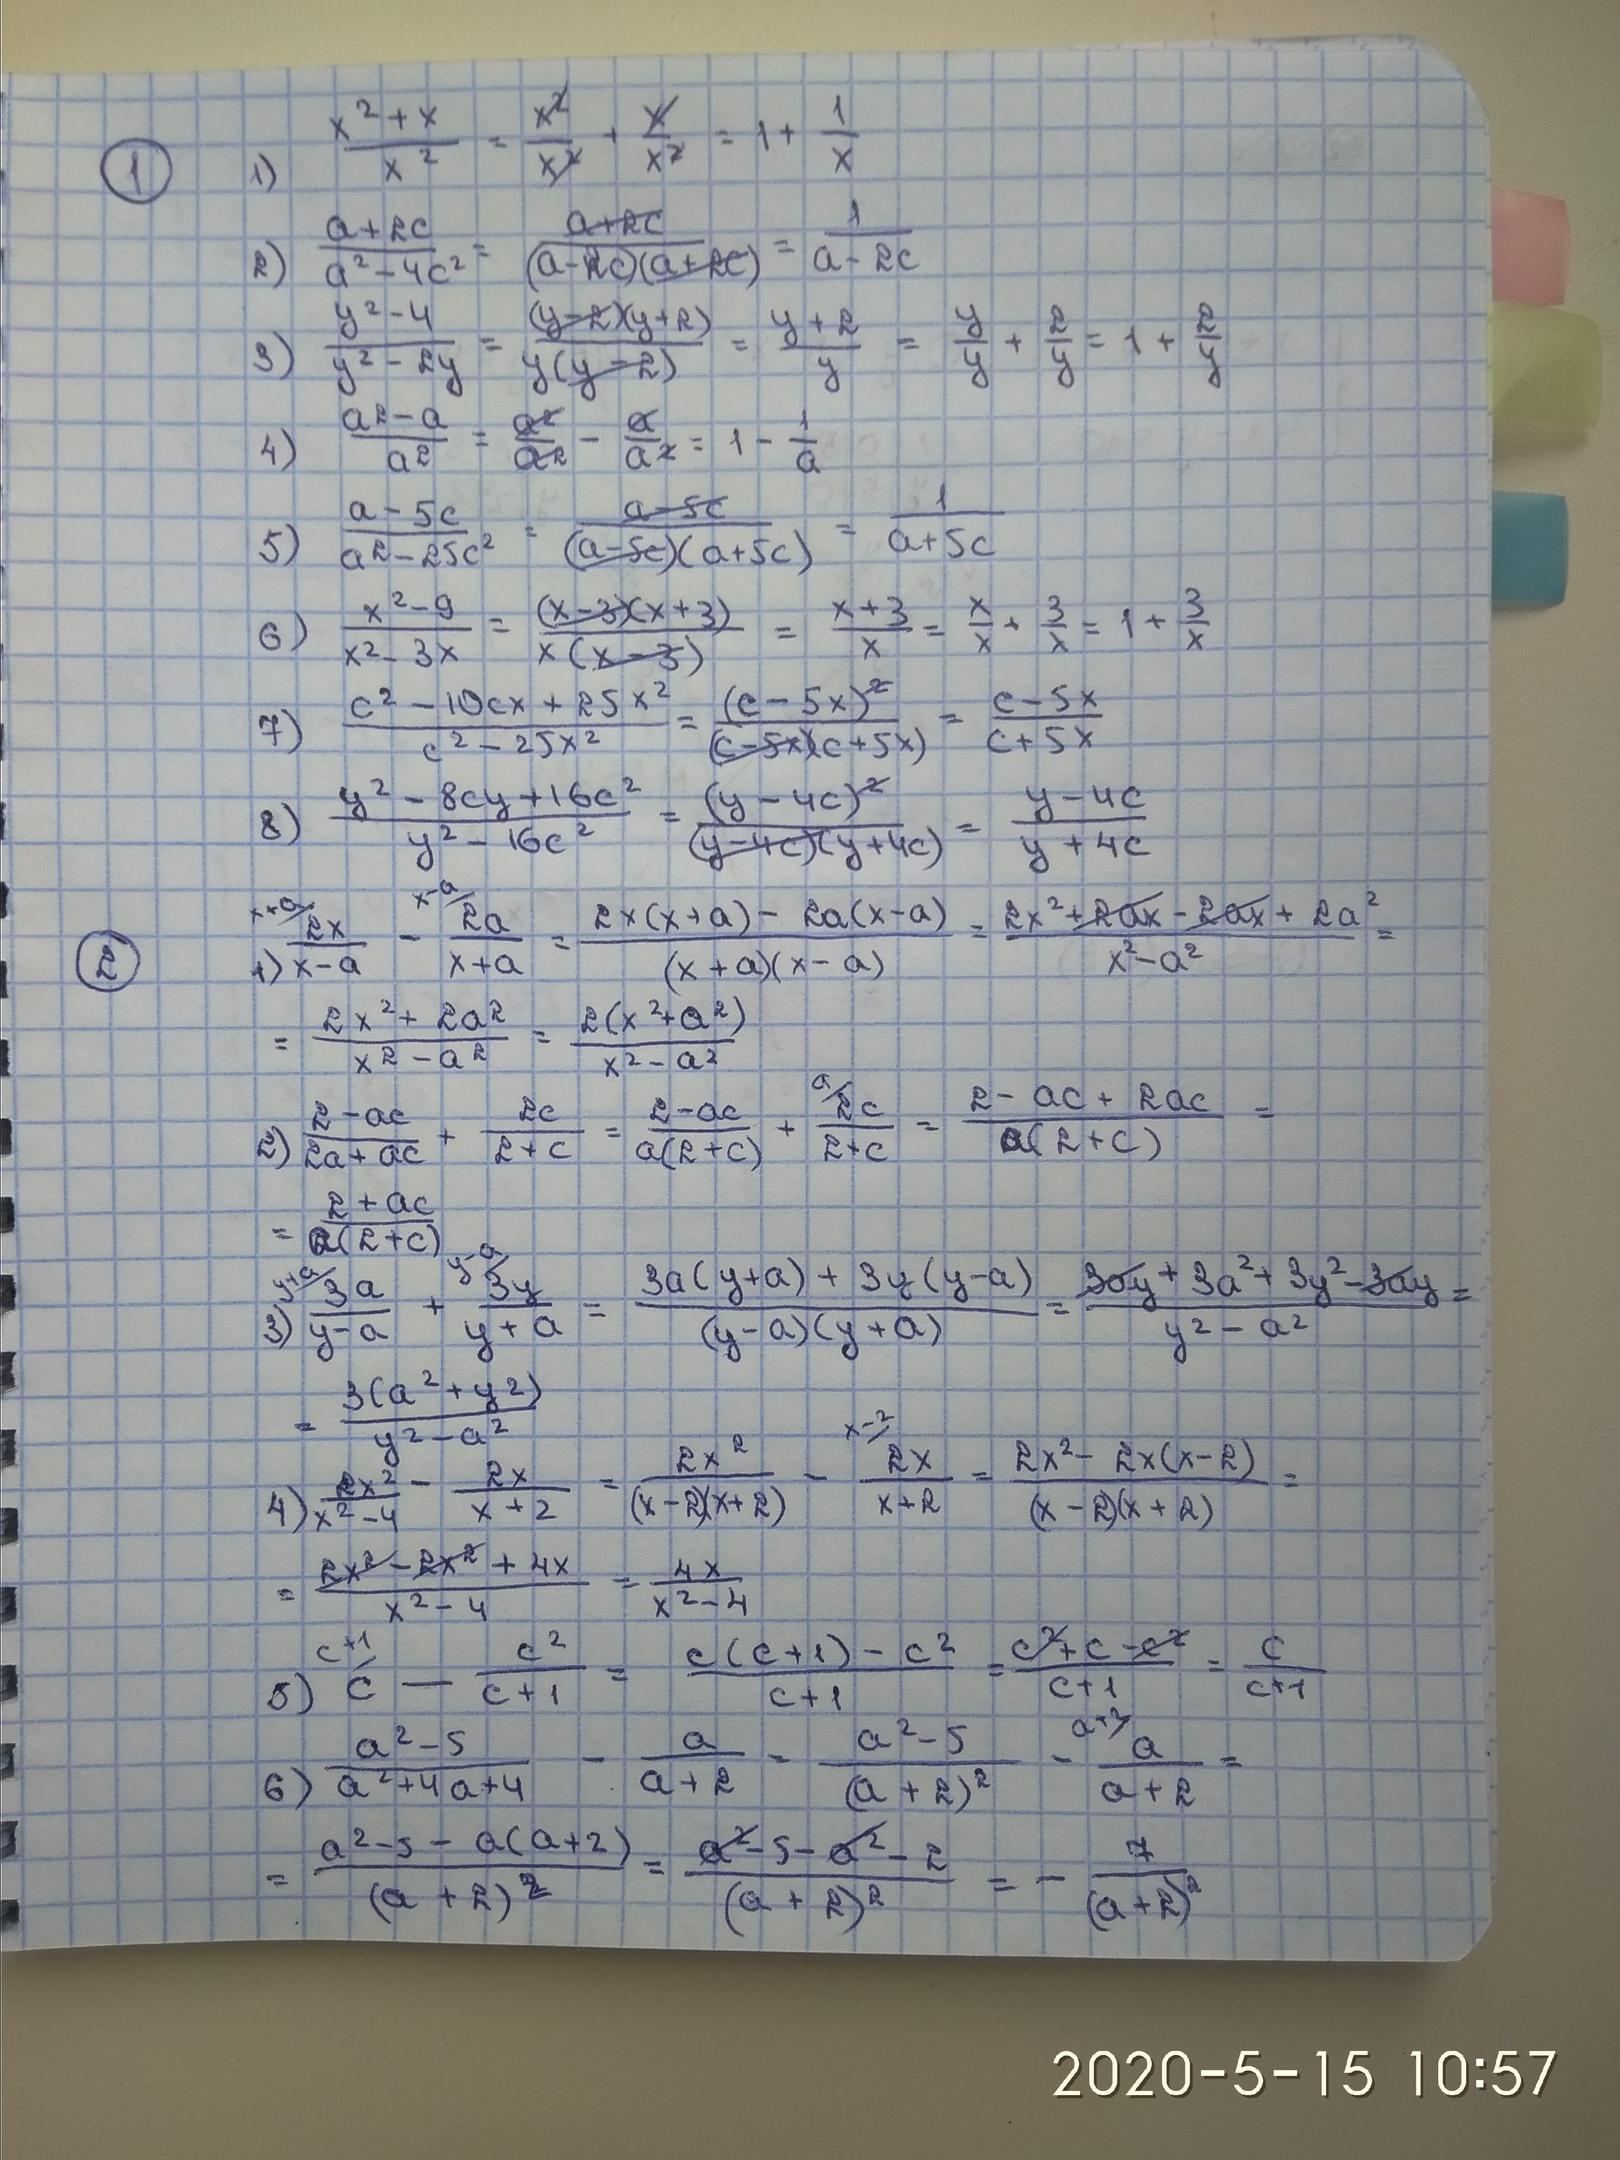 ① 1) (x²+x)/x² = x²/x² + x/x² = 1 + 1/x
2) (a+2c)/(a²-4c²) = (a+2c)/((a-2c)(a+2c)) = 1/(a-2c)
3) (y²-4)/(y²-2y) = ((y-2)(y+2))/(y(y-2)) = (y+2)/y = y/y + 2/y = 1 + 2/y
4) (a²-a)/a² = a²/a² - a/a² = 1 - 1/a
5) (a-5c)/(a²-25c²) = (a-5c)/((a-5c)(a+5c)) = 1/(a+5c)
6) (x²-9)/(x²-3x) = ((x-3)(x+3))/(x(x-3)) = (x+3)/x = x/x + 3/x = 1 + 3/x
7) (c²-10cx+25x²)/(c²-25x²) = (c-5x)²/((c-5x)(c+5x)) = (c-5x)/(c+5x)
8) (y²-8cy+16c²)/(y²-16c²) = (y-4c)²/((y-4c)(y+4c)) = (y-4c)/(y+4c)
② 1) x+a/ 2x/(x-a) - x-a/ 2a/(x+a) = (2x(x+a)-2a(x-a))/((x+a)(x-a)) = (2x²+2ax-2ax+2a²)/(x²-a²) =
= (2x²+2a²)/(x²-a²) = 2(x²+a²)/(x²-a²)
2) (2-ac)/(2a+ac) + 2c/(2+c) = (2-ac)/(a(2+c)) + a/ 2c/(2+c) = (2-ac+2ac)/(a(2+c)) =
= (2+ac)/(a(2+c))
3) y+a/ 3a/(y-a) + y-a/ 3y/(y+a) = (3a(y+a)+3y(y-a))/((y-a)(y+a)) = (3ay+3a²+3y²-3ay)/(y²-a²) =
= 3(a²+y²)/(y²-a²)
4) 2x²/(x²-4) - 2x/(x+2) = 2x²/((x-2)(x+2)) - x-2/ 2x/(x+2) = (2x²-2x(x-2))/((x-2)(x+2)) =
= (2x²-2x²+4x)/(x²-4) = 4x/(x²-4)
5) c+1/ c - c²/(c+1) = (c(c+1)-c²)/(c+1) = (c²+c-c²)/(c+1) = c/(c+1)
6) (a²-5)/(a²+4a+4) - a/(a+2) = (a²-5)/(a+2)² - a+2/ a/(a+2) =
= (a²-5-a(a+2))/(a+2)² = (a²-5-a²-2)/(a+2)² = - 7/(a+2)²
2020-5-15 10:57